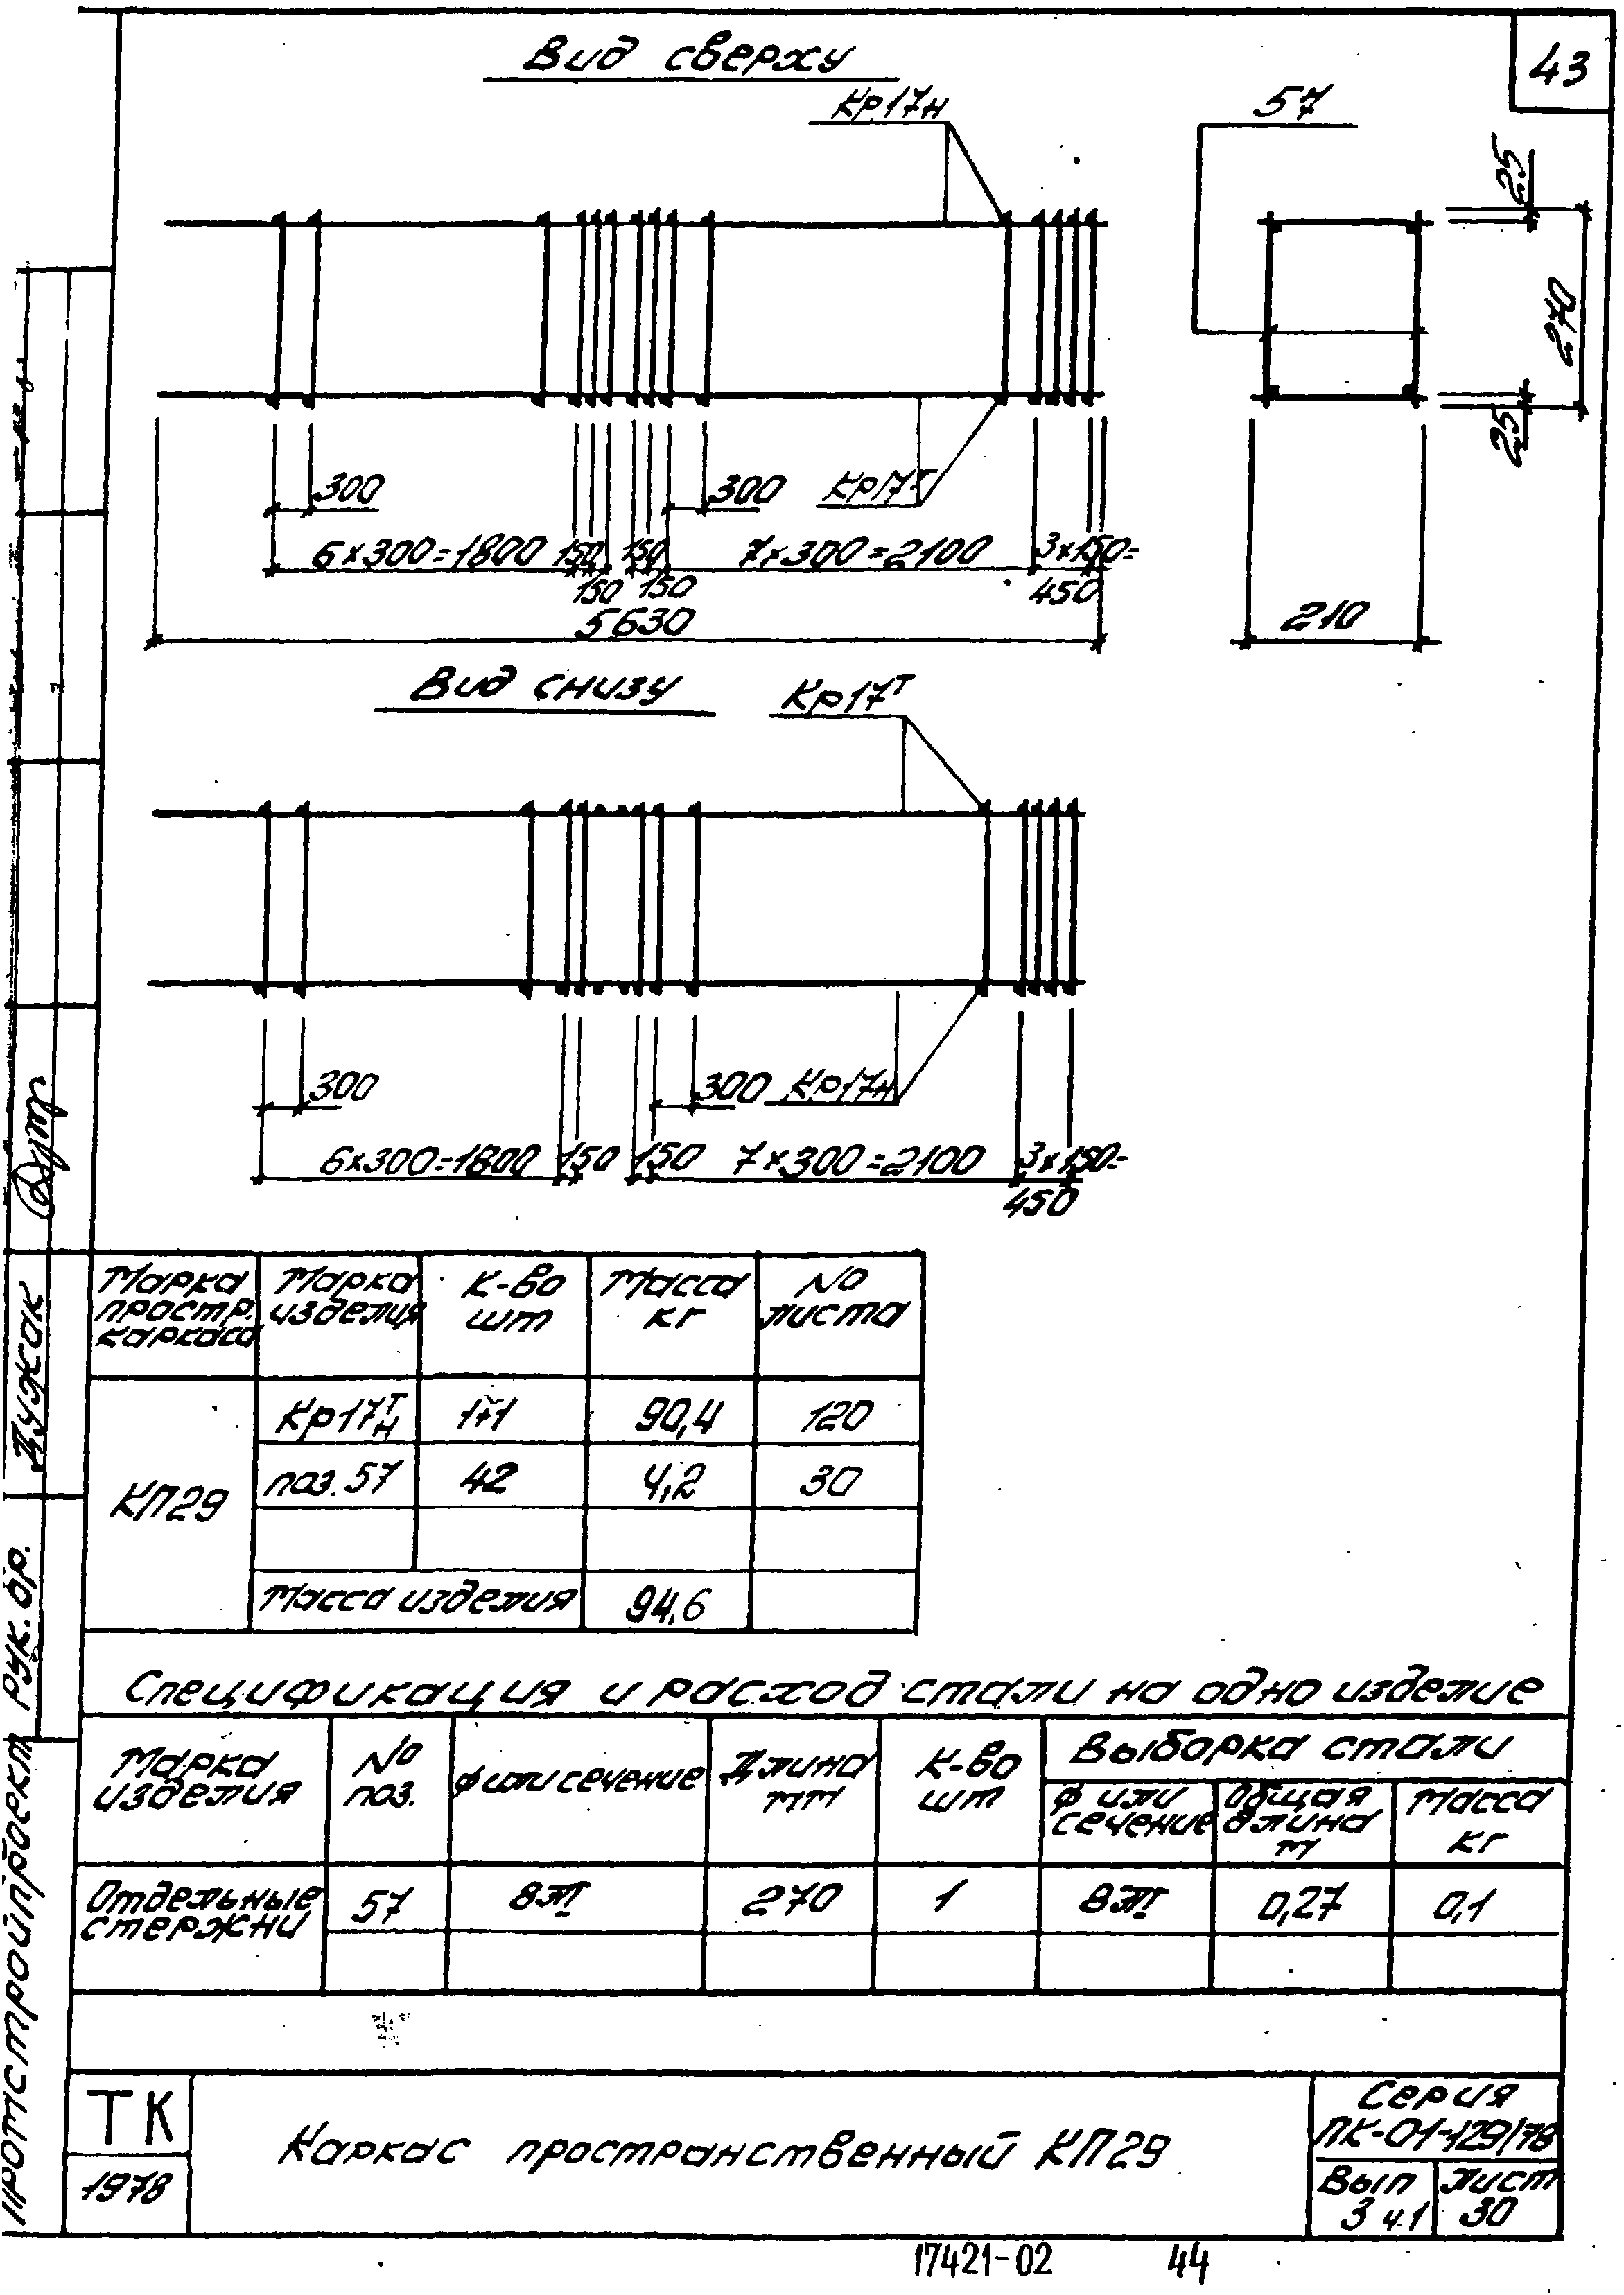 43
Вид сверху
Кр17н
57
25
270
25
300
300
Кр17т
6×300=1800 150 150 7×300=2100 3×150=
150 150 450
5630
210
Вид снизу
Кр17т
300
300
Кр17н
6×300=1800 150 150 7×300=2100 3×150=
450
Марка простр. каркаса
Марка изделия
К-во шт
Масса кг
№ листа
КП29
Кр17т/н 1+1 90,4 120
поз.57 42 4,2 30
Масса изделия 94,6
Спецификация и расход стали на одно изделие
Марка изделия
№ поз.
ф или сечение
Длина мм
К-во шт
Выборка стали
ф или сечение
Общая длина м
Масса кг
Отдельные стержни
57 8АIII 270 1 8АIII 0,27 0,1
ТК
1978
Каркас пространственный КП29
Серия
ПК-01-129/78
Вып 3 ч.1
Лист 30
17421-02 44
Рук. бр.
Дужак